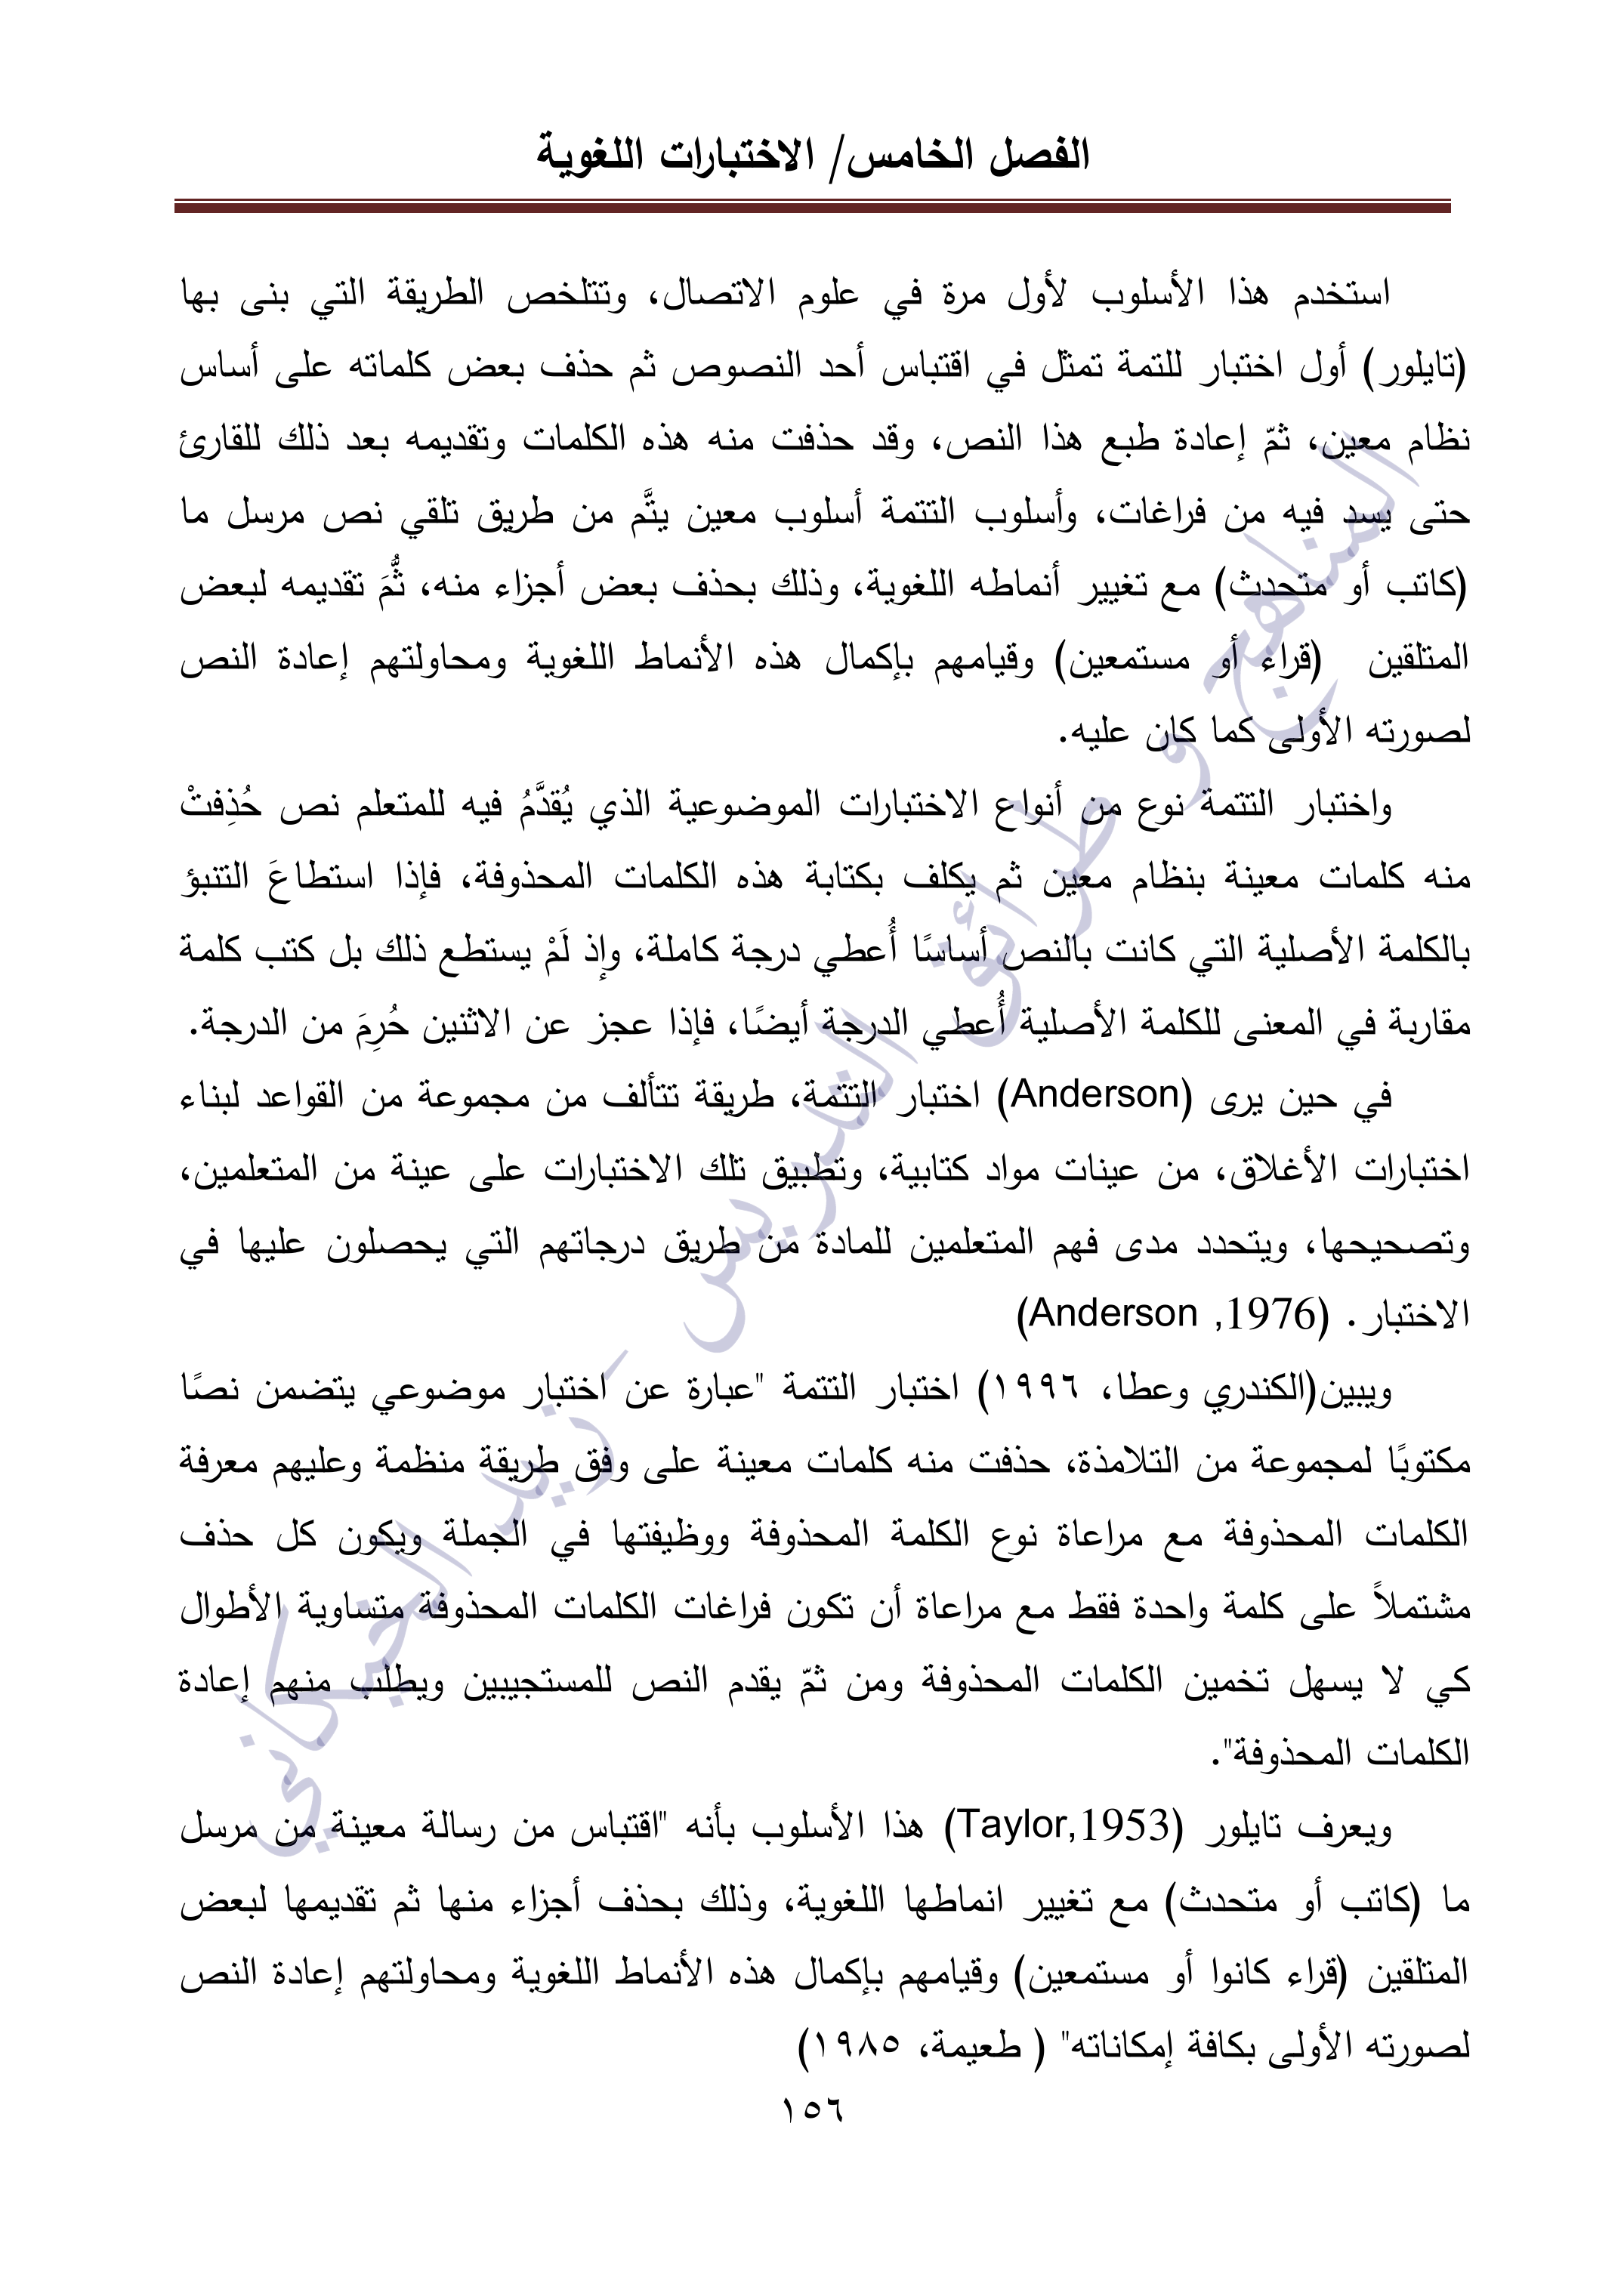 الفصل الخامس/ الاختبارات اللغوية
استخدم هذا الأسلوب لأول مرة في علوم الاتصال، وتتلخص الطريقة التي بنى بها
(تايلور) أول اختبار للتمة تمثل في اقتباس أحد النصوص ثم حذف بعض كلماته على أساس
نظام معين، ثمّ إعادة طبع هذا النص، وقد حذفت منه هذه الكلمات وتقديمه بعد ذلك للقارئ
حتى يسد فيه من فراغات، وأسلوب التتمة أسلوب معين يتَّم من طريق تلقي نص مرسل ما
(كاتب أو متحدث) مع تغيير أنماطه اللغوية، وذلك بحذف بعض أجزاء منه، ثُّمَ تقديمه لبعض
المتلقين (قراء أو مستمعين) وقيامهم بإكمال هذه الأنماط اللغوية ومحاولتهم إعادة النص
لصورته الأولى كما كان عليه.
واختبار التتمة نوع من أنواع الاختبارات الموضوعية الذي يُقدَّمُ فيه للمتعلم نص حُذِفتْ
منه كلمات معينة بنظام معين ثم يكلف بكتابة هذه الكلمات المحذوفة، فإذا استطاعَ التنبؤ
بالكلمة الأصلية التي كانت بالنص أساسًا أُعطي درجة كاملة، وإذ لَمْ يستطع ذلك بل كتب كلمة
مقاربة في المعنى للكلمة الأصلية أُعطي الدرجة أيضًا، فإذا عجز عن الاثنين حُرِمَ من الدرجة.
في حين يرى (Anderson) اختبار التتمة، طريقة تتألف من مجموعة من القواعد لبناء
اختبارات الأغلاق، من عينات مواد كتابية، وتطبيق تلك الاختبارات على عينة من المتعلمين،
وتصحيحها، ويتحدد مدى فهم المتعلمين للمادة من طريق درجاتهم التي يحصلون عليها في
الاختبار. (Anderson ,1976)
ويبين(الكندري وعطا، ١٩٩٦) اختبار التتمة "عبارة عن اختبار موضوعي يتضمن نصًا
مكتوبًا لمجموعة من التلامذة، حذفت منه كلمات معينة على وفق طريقة منظمة وعليهم معرفة
الكلمات المحذوفة مع مراعاة نوع الكلمة المحذوفة ووظيفتها في الجملة ويكون كل حذف
مشتملاً على كلمة واحدة فقط مع مراعاة أن تكون فراغات الكلمات المحذوفة متساوية الأطوال
كي لا يسهل تخمين الكلمات المحذوفة ومن ثمّ يقدم النص للمستجيبين ويطلب منهم إعادة
الكلمات المحذوفة".
ويعرف تايلور (Taylor,1953) هذا الأسلوب بأنه "اقتباس من رسالة معينة من مرسل
ما (كاتب أو متحدث) مع تغيير انماطها اللغوية، وذلك بحذف أجزاء منها ثم تقديمها لبعض
المتلقين (قراء كانوا أو مستمعين) وقيامهم بإكمال هذه الأنماط اللغوية ومحاولتهم إعادة النص
لصورته الأولى بكافة إمكاناته" ( طعيمة، ١٩٨٥)
١٥٦
المناهج و طرائق التدريس - زيد الخيكاني